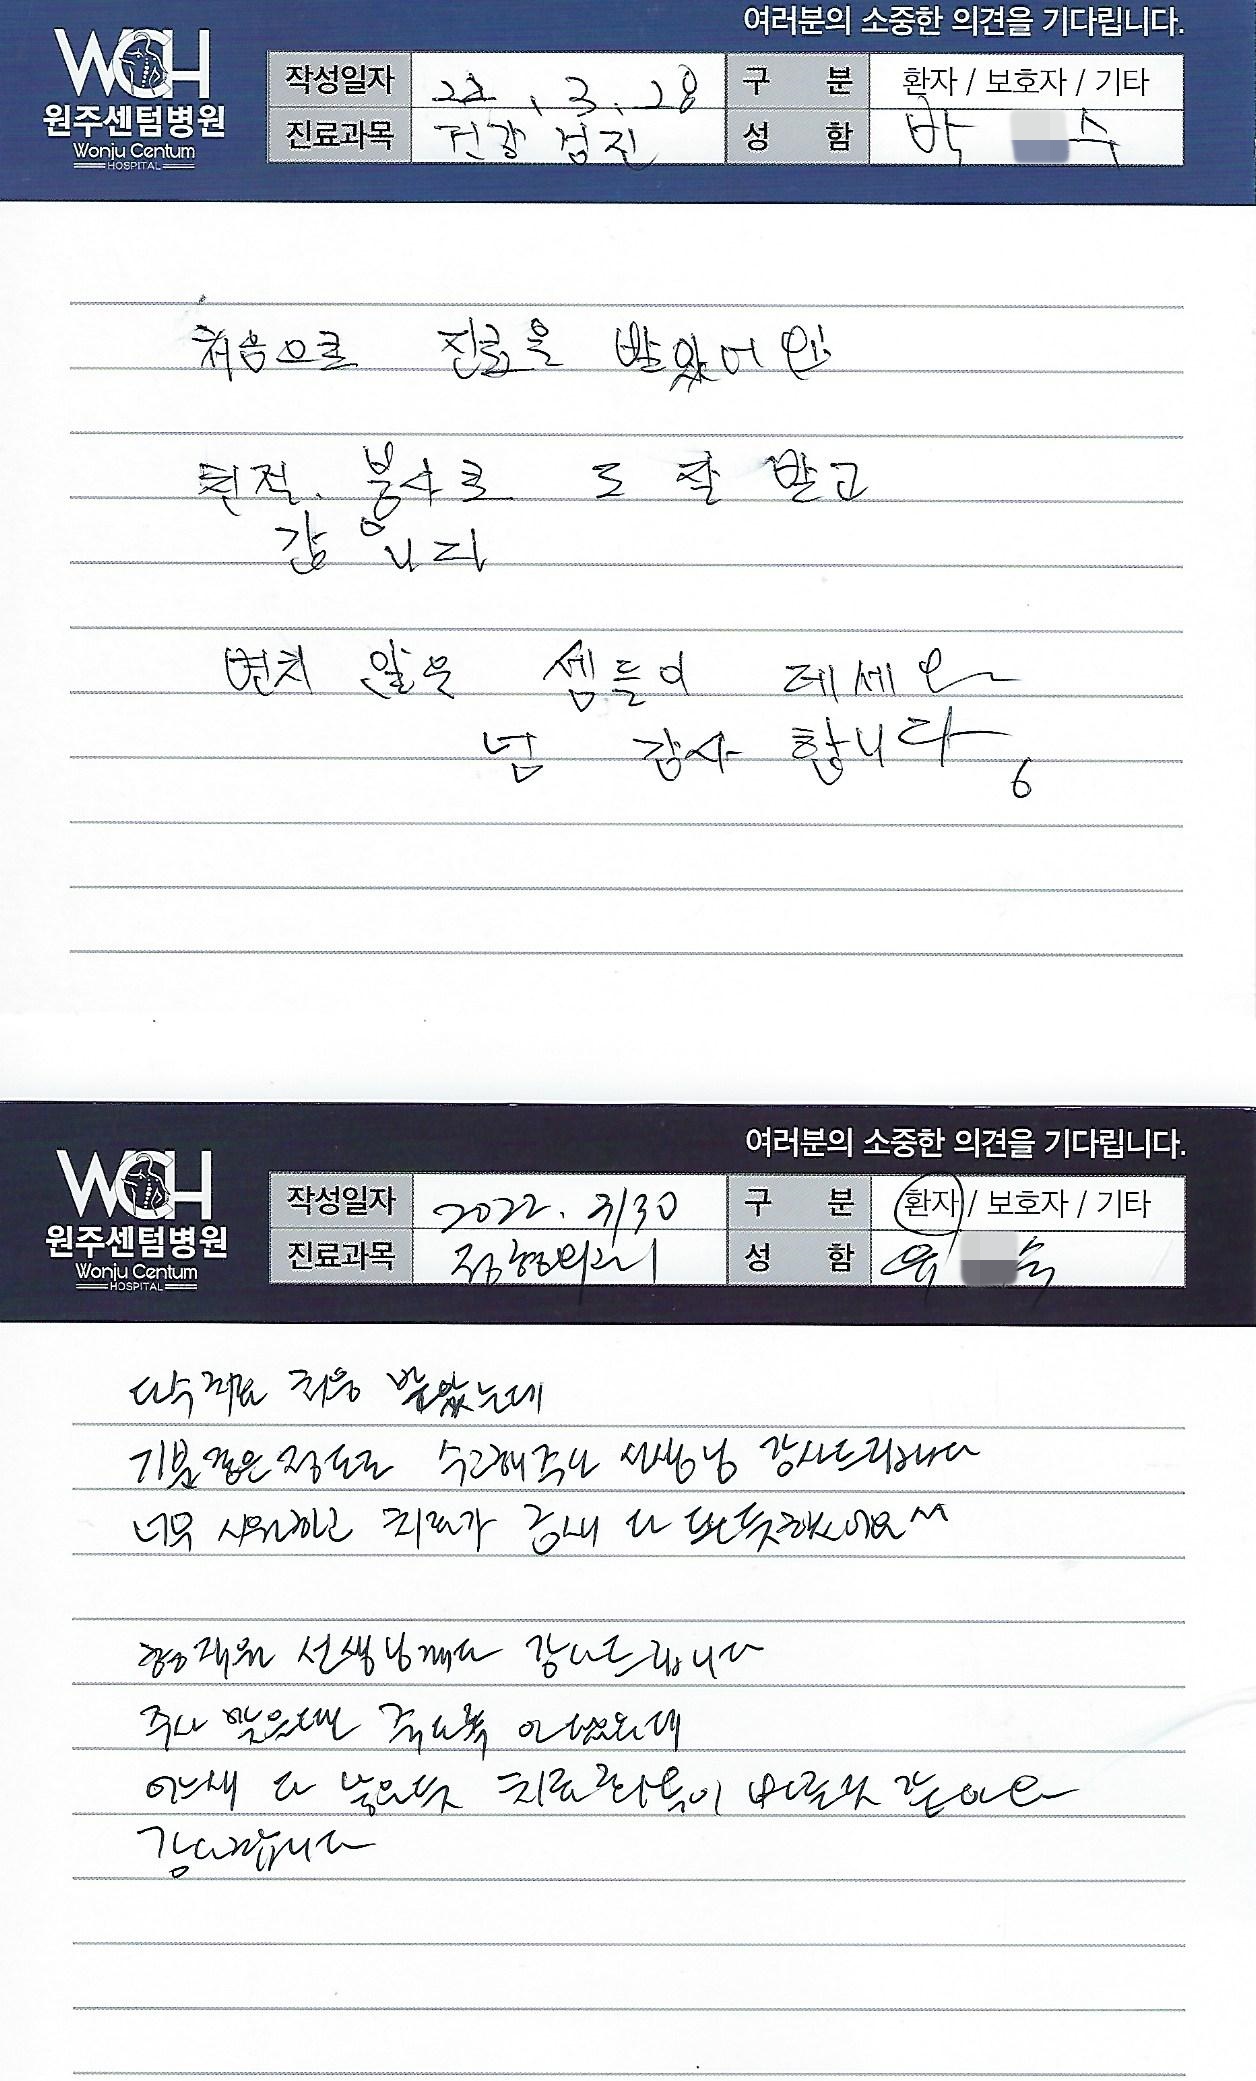 여러분의 소중한 의견을 기다립니다.
WCH
원주센텀병원
Wonju Centum
HOSPITAL
작성일자 22. 3. 28 구 분 환자 / 보호자 / 기타
진료과목 건강검진 성 함 박 수
처음으로 진료을 받았어요
친절. 봉사로 도 잘 받고
갑 니다
변치 않은 셈들이 데세요
넘 감사 합니다
여러분의 소중한 의견을 기다립니다.
WCH
원주센텀병원
Wonju Centum
HOSPITAL
작성일자 2022. 3/30 구 분 환자 / 보호자 / 기타
진료과목 정형외과 성 함 숙
치료 처음 받았는데
기분 좋은 정도로 선생님 감사드립니다
너무 시원하고 치료가 금새 다 된듯하네요^^
선생님께도 감사드립니다
주사 맞은데만
금새 다 나은듯 치료 같아요
감사합니다